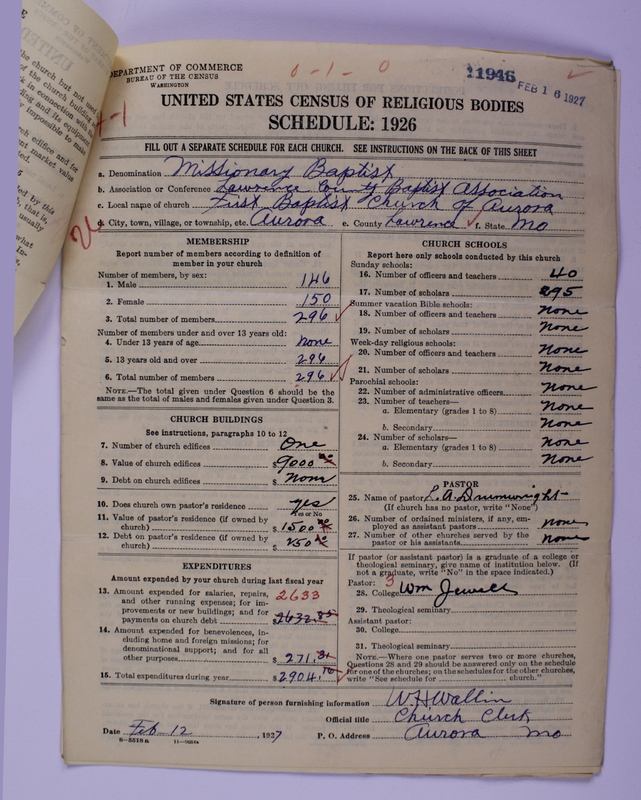 DEPARTMENT OF COMMERCE
BUREAU OF THE CENSUS
WASHINGTON
0-1-0
11946
FEB 16 1927
UNITED STATES CENSUS OF RELIGIOUS BODIES
SCHEDULE: 1926
FILL OUT A SEPARATE SCHEDULE FOR EACH CHURCH. SEE INSTRUCTIONS ON THE BACK OF THIS SHEET
a. Denomination Missionary Baptist
b. Association or Conference Lawrence County Baptist Association
c. Local name of church First Baptist Church of Aurora
d. City, town, village, or township, etc. Aurora e. County Lawrence f. State Mo
MEMBERSHIP
Report number of members according to definition of
member in your church
Number of members, by sex:
1. Male 146
2. Female 150
3. Total number of members 296
Number of members under and over 13 years old:
4. Under 13 years of age none
5. 13 years old and over 296
6. Total number of members 296
NOTE.—The total given under Question 6 should be the
same as the total of males and females given under Question 3.
CHURCH BUILDINGS
See instructions, paragraphs 10 to 12
7. Number of church edifices One
8. Value of church edifices $9000
9. Debt on church edifices $ none
10. Does church own pastor's residence yes
Yes or No
11. Value of pastor's residence (if owned by
church) $1500
12. Debt on pastor's residence (if owned by
church) $
EXPENDITURES
Amount expended by your church during last fiscal year
13. Amount expended for salaries, repairs,
and other running expenses; for im-
provements or new buildings; and for
payments on church debt 2633 $2632.85
14. Amount expended for benevolences, in-
cluding home and foreign missions; for
denominational support; and for all
other purposes $271.31
15. Total expenditures during year $2904.
CHURCH SCHOOLS
Report here only schools conducted by this church
Sunday schools:
16. Number of officers and teachers 40
17. Number of scholars 295
Summer vacation Bible schools:
18. Number of officers and teachers none
19. Number of scholars none
Week-day religious schools:
20. Number of officers and teachers none
21. Number of scholars none
Parochial schools:
22. Number of administrative officers none
23. Number of teachers—
a. Elementary (grades 1 to 8) none
b. Secondary none
24. Number of scholars—
a. Elementary (grades 1 to 8) none
b. Secondary none
PASTOR
25. Name of pastor L. A. Drumwright
(If church has no pastor, write "None")
26. Number of ordained ministers, if any, em-
ployed as assistant pastors none
27. Number of other churches served by the
pastor or his assistants none
If pastor (or assistant pastor) is a graduate of a college or
theological seminary, give name of institution below. (If
not a graduate, write "No" in the space indicated.)
Pastor: 3
28. College Wm Jewell
29. Theological seminary
Assistant pastor:
30. College
31. Theological seminary
NOTE.—Where one pastor serves two or more churches,
Questions 28 and 29 should be answered only on the schedule
for one of the churches; on the schedules for the other churches,
write "See schedule for church."
Signature of person furnishing information W. H. Wallin
Official title Church Clerk
Date Feb 12, 1927 P. O. Address Aurora Mo